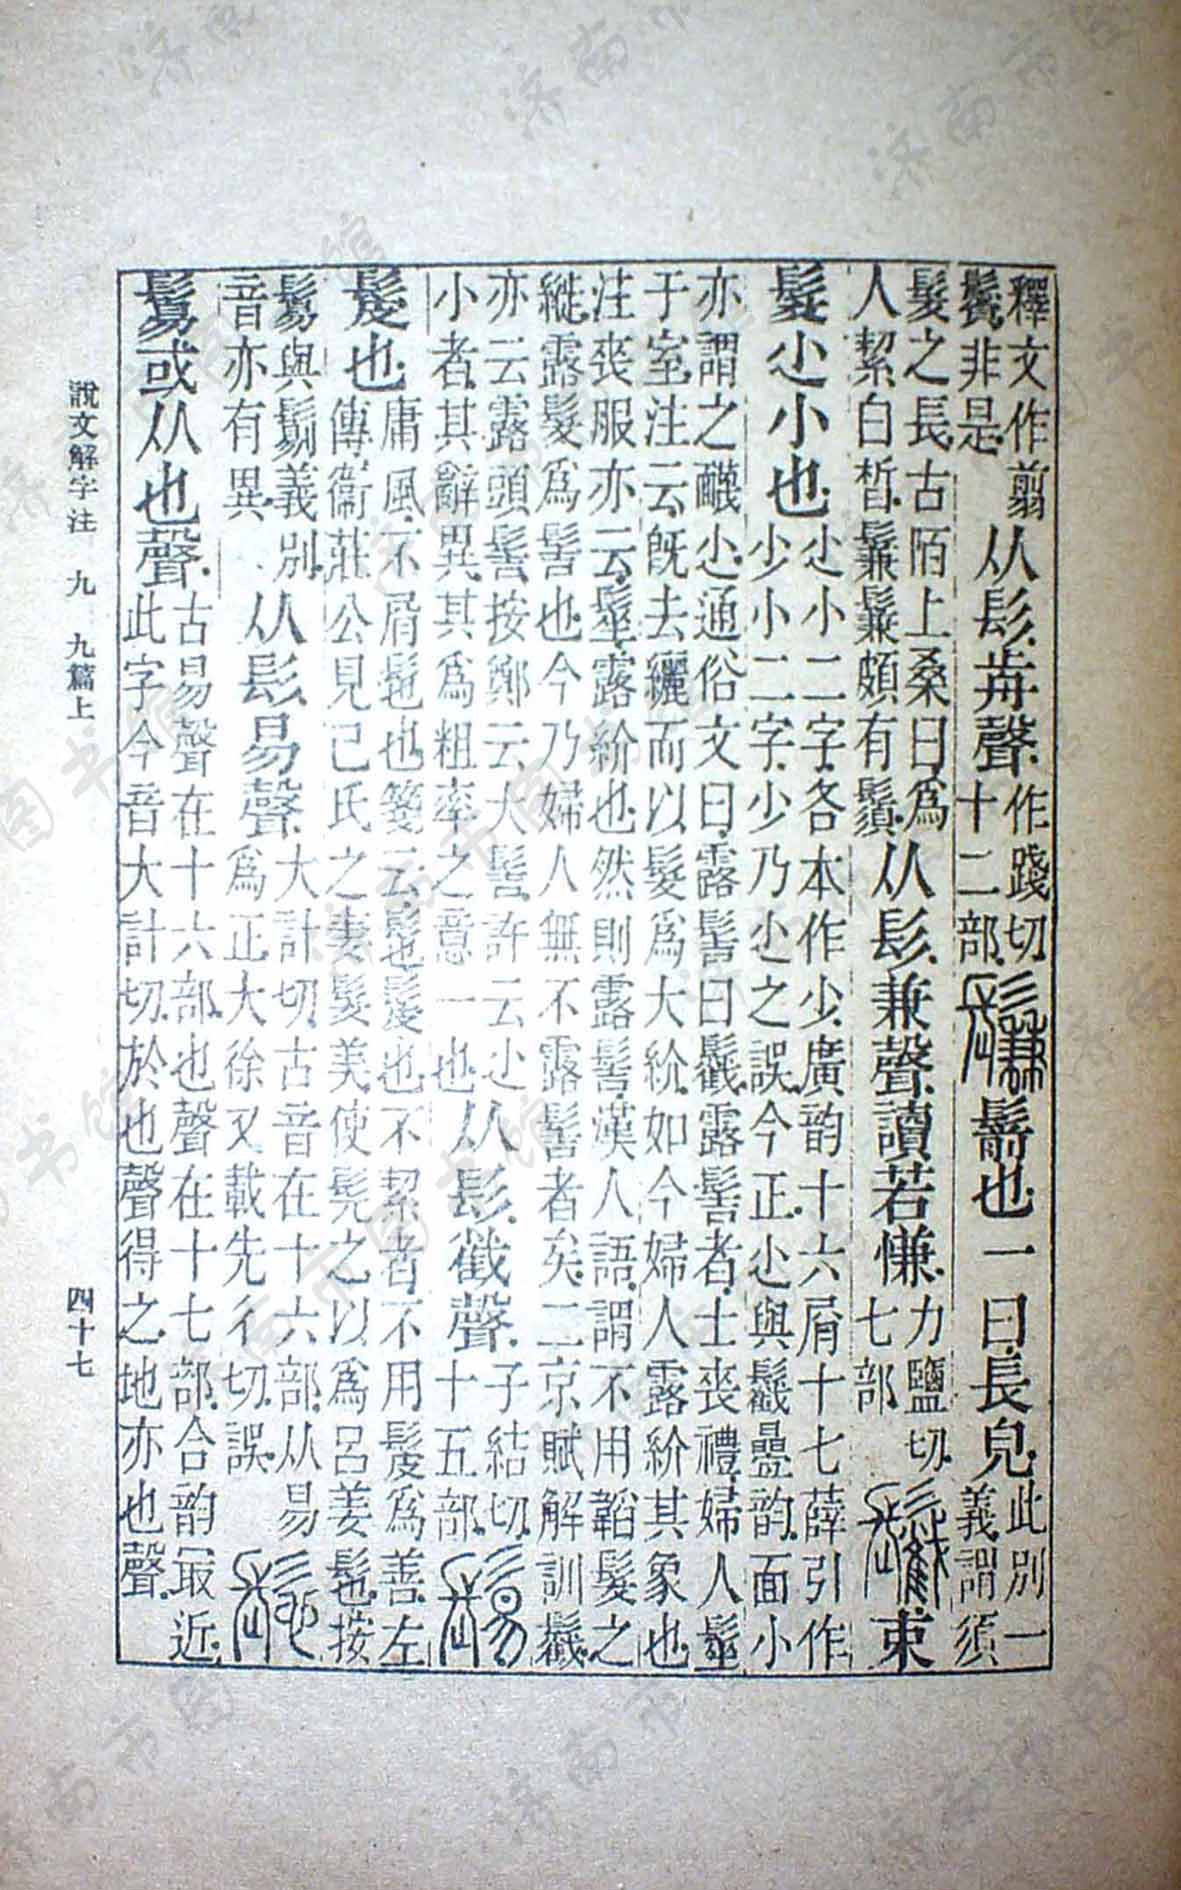 釋文作翦
鬢非是
从髟歬聲
作踐切
十二部
鬑
鬋也一曰長皃
此別一
義謂須
髮之長古陌上桑曰爲
人絜白晳鬑鬑頗有鬚
从髟兼聲讀若慊
力鹽切
七部
䰏
束
髮尐小也
尐小二字各本作少廣韵十六屑十七薛引作
少小二字少乃尐之誤今正尐與䰏曡韵面小
亦謂之䤘尐通俗文曰露髻曰䰏露髻者士喪禮婦人髽
于室注云旣去纚而以髮爲大紒如今婦人露紒其象也
注喪服亦云髽露紒也然則露髻漢人語謂不用韜髮之
縰露髮爲髻也今乃婦人無不露髻者矣二京賦解訓䰏
亦云露頭髻按鄭云大髻許云尐
小者其辭異其爲粗率之意一也
从髟截聲
子結切
十五部
鬄
髲也
庸風不屑髢也也箋云髢髲也不絜者不用髲爲善左
傳衞莊公見己氏之妻髮美使髡之以爲呂姜髢按
鬄與𩮜義別
音亦有異
从髟易聲
大計切古音在十六部从易
爲正大徐又載先彳切誤
髢
鬄或从也聲
古易聲在十六部也聲在十七部合韵㝡近
此字今音大計切於也聲得之地亦也聲
說文解字注 九 九篇上
四十七
济南市图书馆